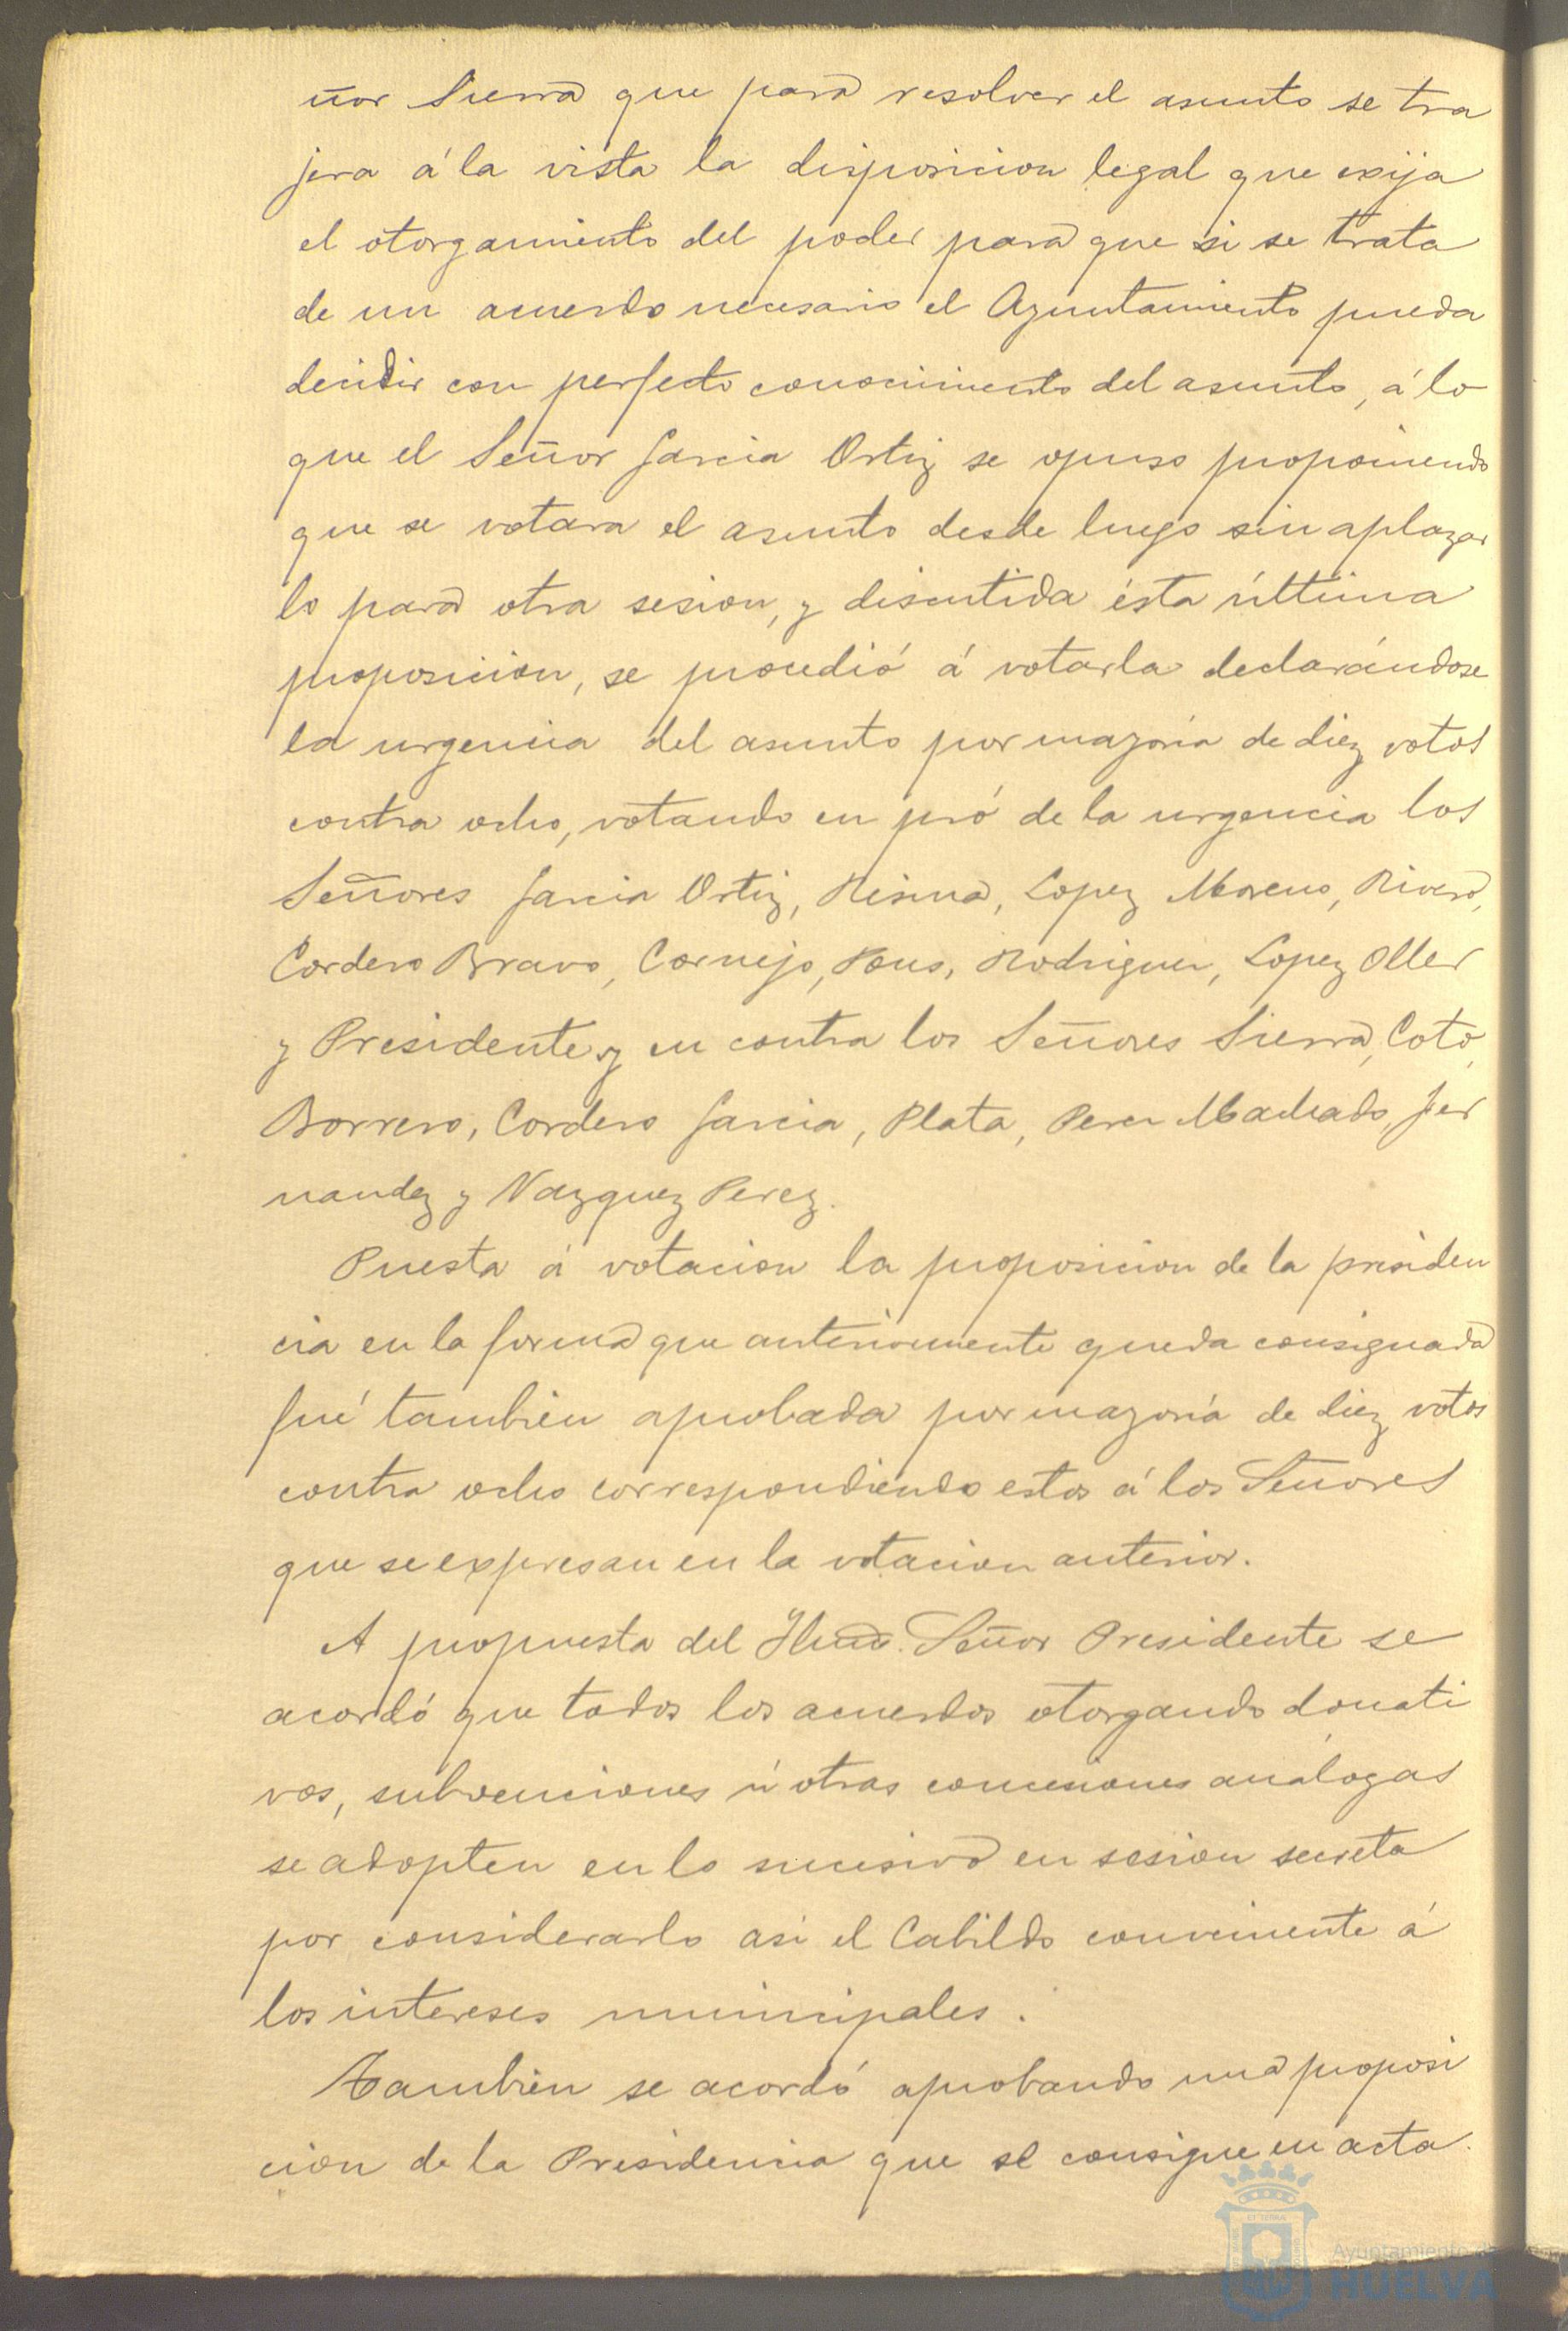 ñor Sierra que para resolver el asunto se tra
jera á la vista la disposicion legal que exija
el otorgamiento del poder para que si se trata
de un acuerdo necesario el Ayuntamiento pueda
decidir con perfecto conocimiento del asunto, á lo
que el Señor Garcia Ortiz se opuso proponiendo
que se votara el asunto desde luego sin aplazar
lo para otra sesion, y discutida ésta última
proposicion, se procedió á votarla declarándose
la urgencia del asunto por mayoría de diez votos
contra ocho, votando en pró de la urgencia los
Señores Garcia Ortiz, Lopez Moreno, Rivera,
Cordero Bravo, Cornejo, Pons, Rodriguez, Lopez Oller
y Presidente y en contra los Señores Sierra, Coto,
Borrero, Cordero Garcia, Plata, Perez Machado, Fer
nandez y Vazquez Perez.
Puesta á votacion la proposicion de la presiden
cia en la forma que anteriormente queda consignada
fué tambien aprobada por mayoría de diez votos
contra ocho correspondiendo estos á los Señores
que se expresan en la votacion anterior.
A propuesta del Ilmo. Señor Presidente se
acordó que todos los acuerdos otorgando donati
vos, subvenciones ú otras concesiones análogas
se adopten en lo sucesivo en sesion secreta
por considerarlo asi el Cabildo conveniente á
los intereses municipales.
Tambien se acordó aprobando una proposi
cion de la Presidencia que se consigne en acta
Ayuntamiento de
HUELVA